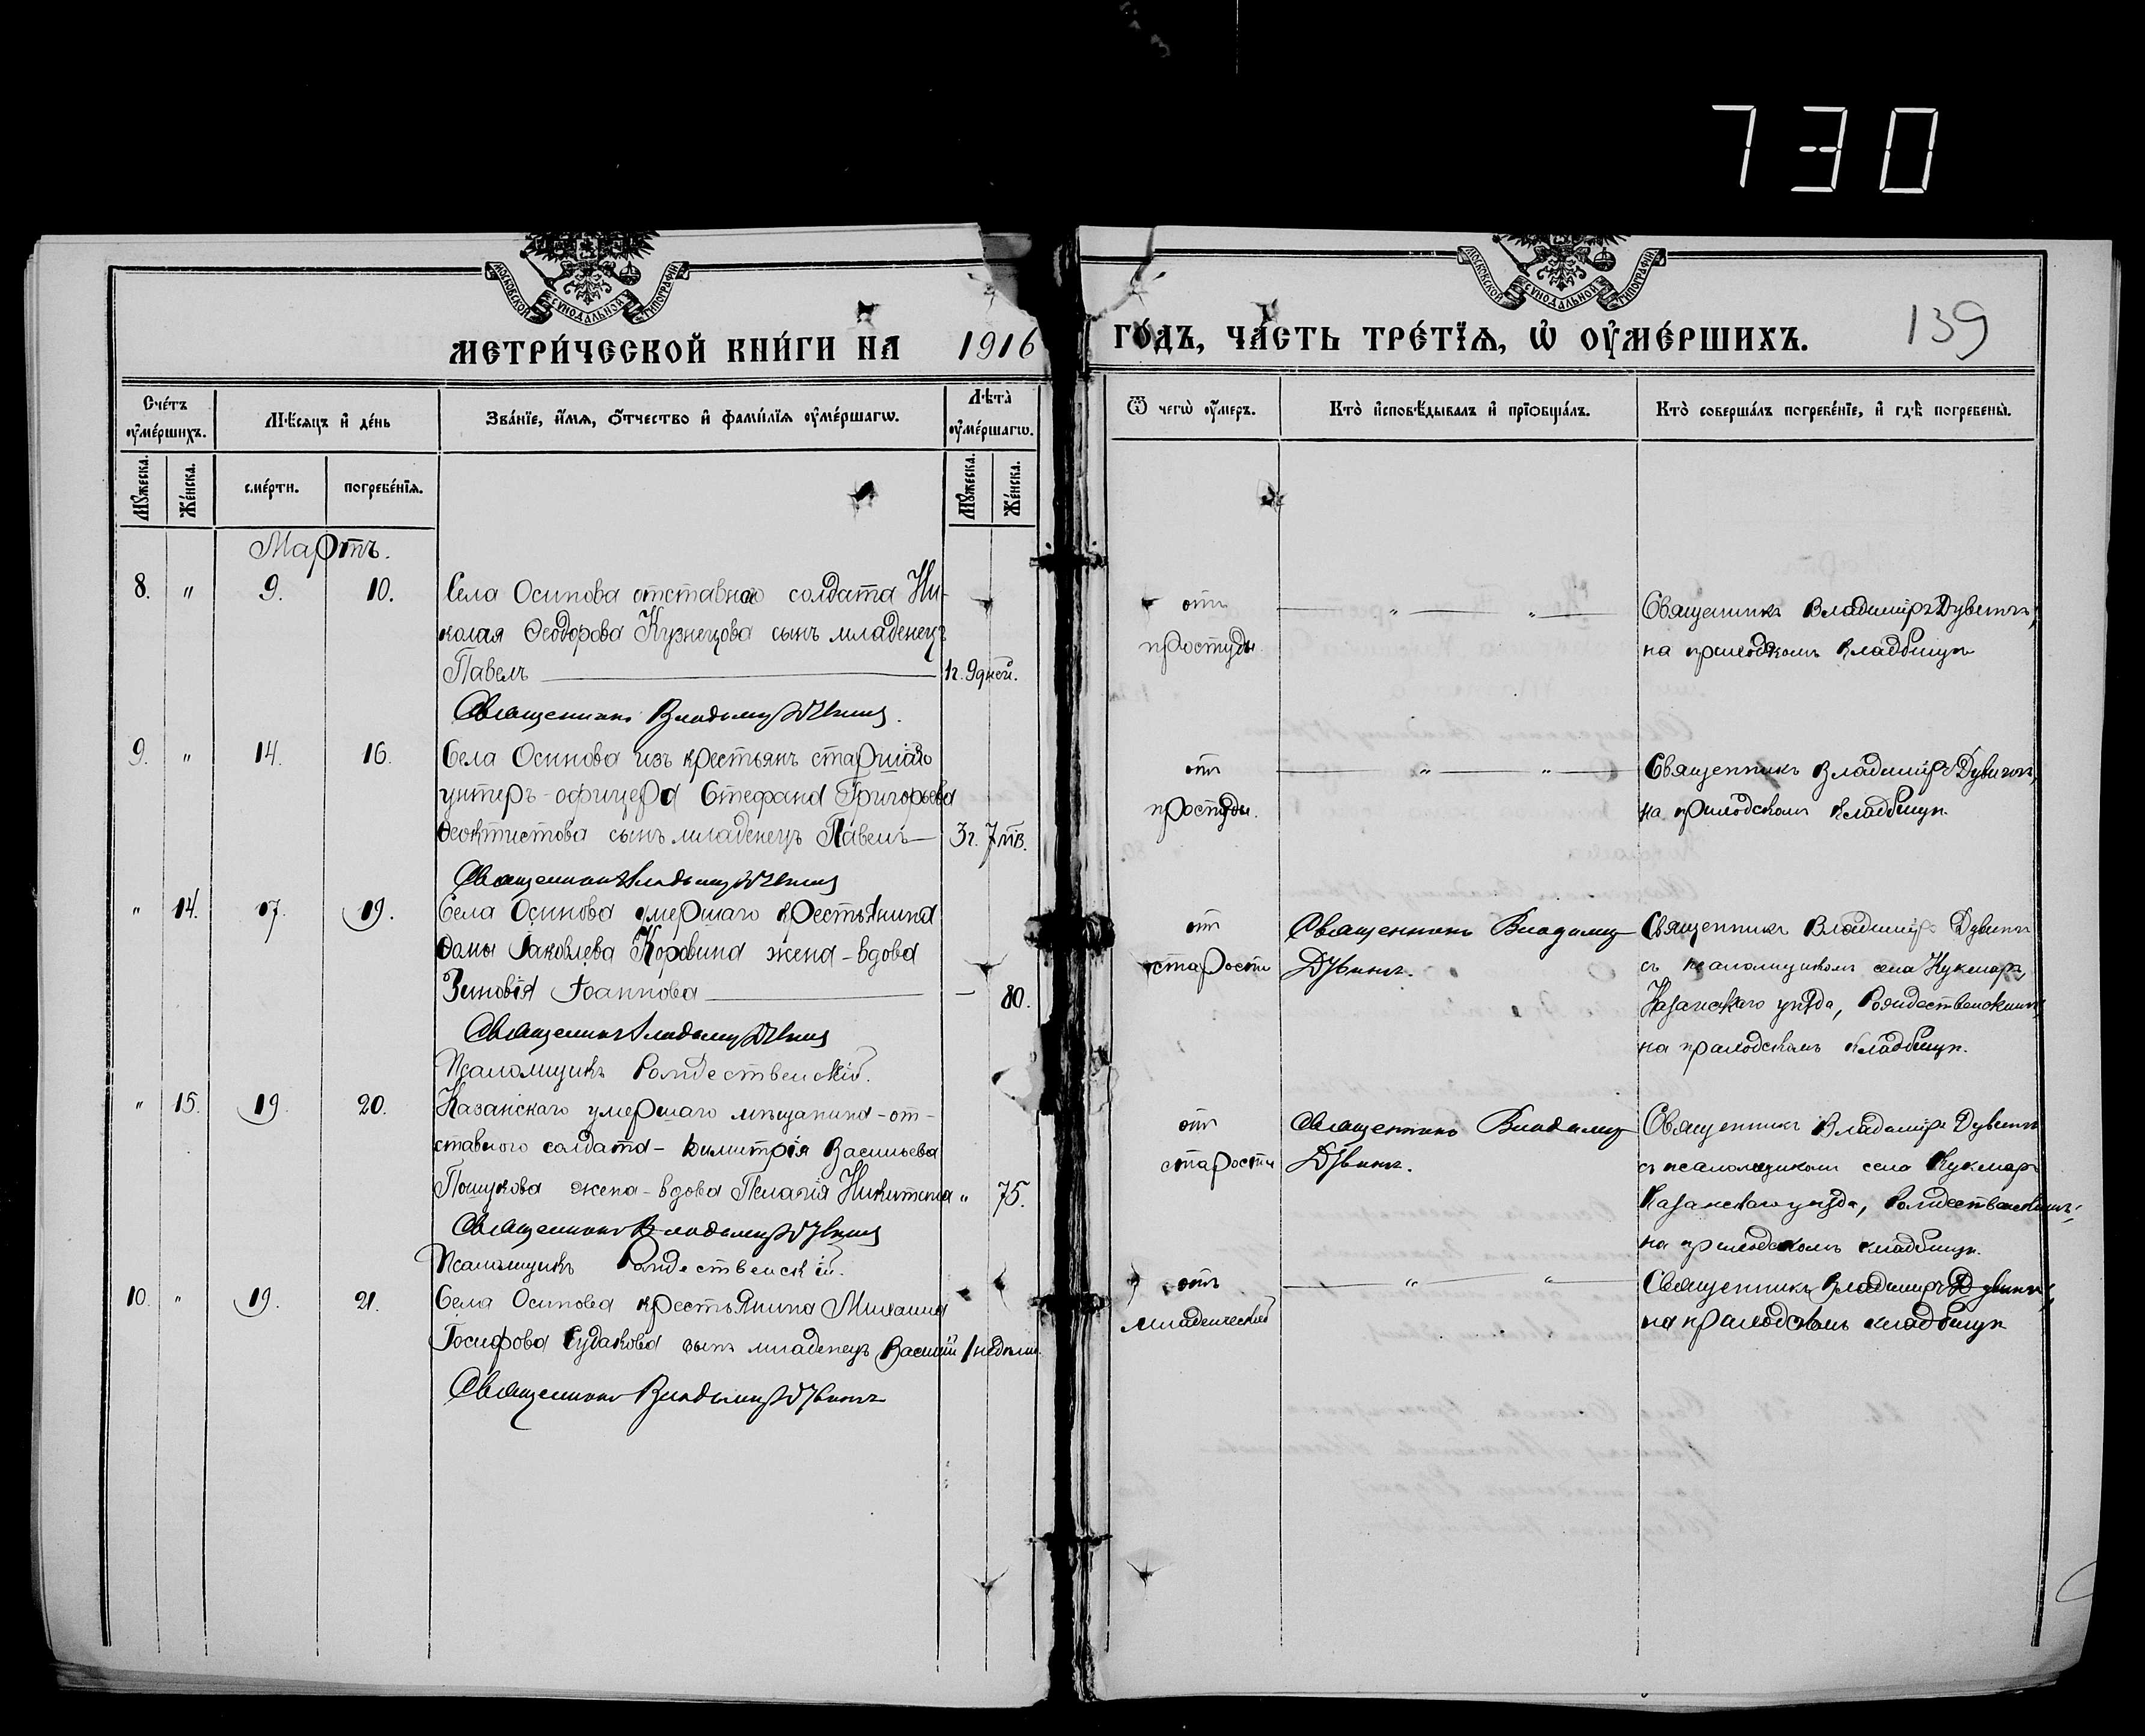 730
МОСКОВСКОЙ СѴНОДАЛЬНОЙ ТИПОГРАФІИ
МОСКОВСКОЙ СѴНОДАЛЬНОЙ ТИПОГРАФІИ
МЕТРИ́ЧЕСКОЙ КНИ́ГИ НА 1916 ГО́ДЪ, ЧА́СТЬ ТРЕ́ТЇѦ, Ѡ҆ ОУ҆МЕ́РШИХЪ.
139
Сче́тъ оу҆ме́ршихъ.
Мѣ́сяцъ и҆ де́нь
Зва́нїе, и҆́мѧ, ѻ҆́тчество и҆ фами́лїѧ оу҆ме́ршагѡ.
Лѣ́та оу҆ме́ршагѡ.
Ѿ чегѡ̀ оу҆́меръ.
Кто̀ и҆сповѣ́дывалъ и҆ прїѡбща́лъ.
Кто̀ соверша́лъ погребе́нїе, и҆ гдѣ̀ погребены̀.
Мꙋ́жеска.
Же́нска.
сме́рти.
погребе́нїѧ.
Мꙋ́жеска.
Же́нска.
Мартъ.
8. " 9. 10. Села Осинова отставнаго солдата Ни-
колая Ѳеодорова Кузнецова сынъ младенецъ
Павелъ — 1г. 9 дней.
Священникъ Владимиръ Дувинъ.
отъ простуды.
— " — " —
Священникъ Владиміръ Дувинъ,
на приходскомъ кладбищѣ
9. " 14. 16. Села Осинова изъ крестьянъ старшаго
унтеръ-офицера Стефана Григорьева
Ѳеоктистова сынъ младенецъ Павелъ — 3г. 7 мѣ.
Священникъ Владимиръ Дувинъ
отъ простуды.
— " — " —
Священникъ Владиміръ Дувинъ,
на приходскомъ кладбищѣ.
" 14. 17. 19. Села Осинова умершаго крестьянина
Ѳомы Іаковлева Коровина жена-вдова
Зиновія Іоаннова — — 80.
Священникъ Владимиръ Дувинъ
Псаломщикъ Рождественскій.
отъ старости
Священникъ Владимиръ
Дувинъ.
Священникъ Владиміръ Дувинъ
съ псаломщикомъ села Кукморъ,
Казанскаго уѣзда, Рождественскимъ,
на приходскомъ кладбищѣ.
" 15. 19. 20. Казанскаго умершаго мѣщанина-от-
ставного солдата - Димитрія Васильева
жена-вдова Пелагія Никитина " 75.
Священникъ Владимиръ Дувинъ
Псаломщикъ Рождественскій.
отъ старости
Священникъ Владимиръ
Дувинъ.
Священникъ Владиміръ Дувинъ
съ псаломщикомъ села Кукморъ
Казанскаго уѣзда, Рождественскимъ;
на приходскомъ кладбищѣ.
10. " 19. 21. Села Осинова крестьянина Михаила
Іосифова Судакова сынъ младенецъ Василій 1 недѣли.
Священникъ Владимиръ Дувинъ
отъ младенческой
— " — " —
Священникъ Владиміръ Дувинъ,
на приходскомъ кладбищѣ